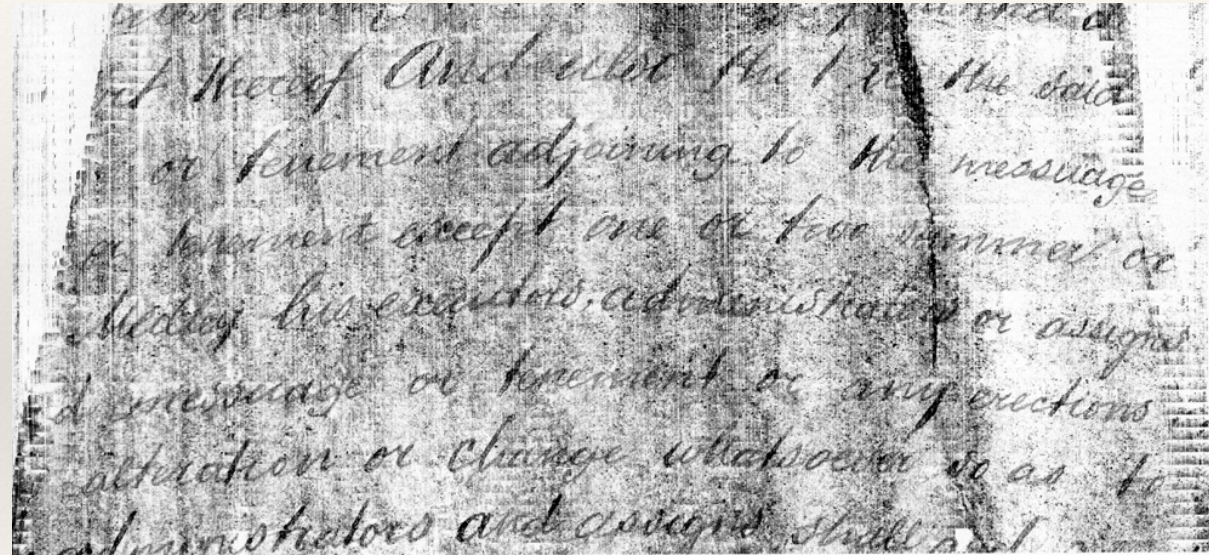 thereof And the the said
or tenement adjoining to the messuage
or tenement except one or two summer or
Medley his executors, administrators or assigns
d messuage or tenement or any erections
alteration or change whatsoever so as to
administrators and assigns shall and